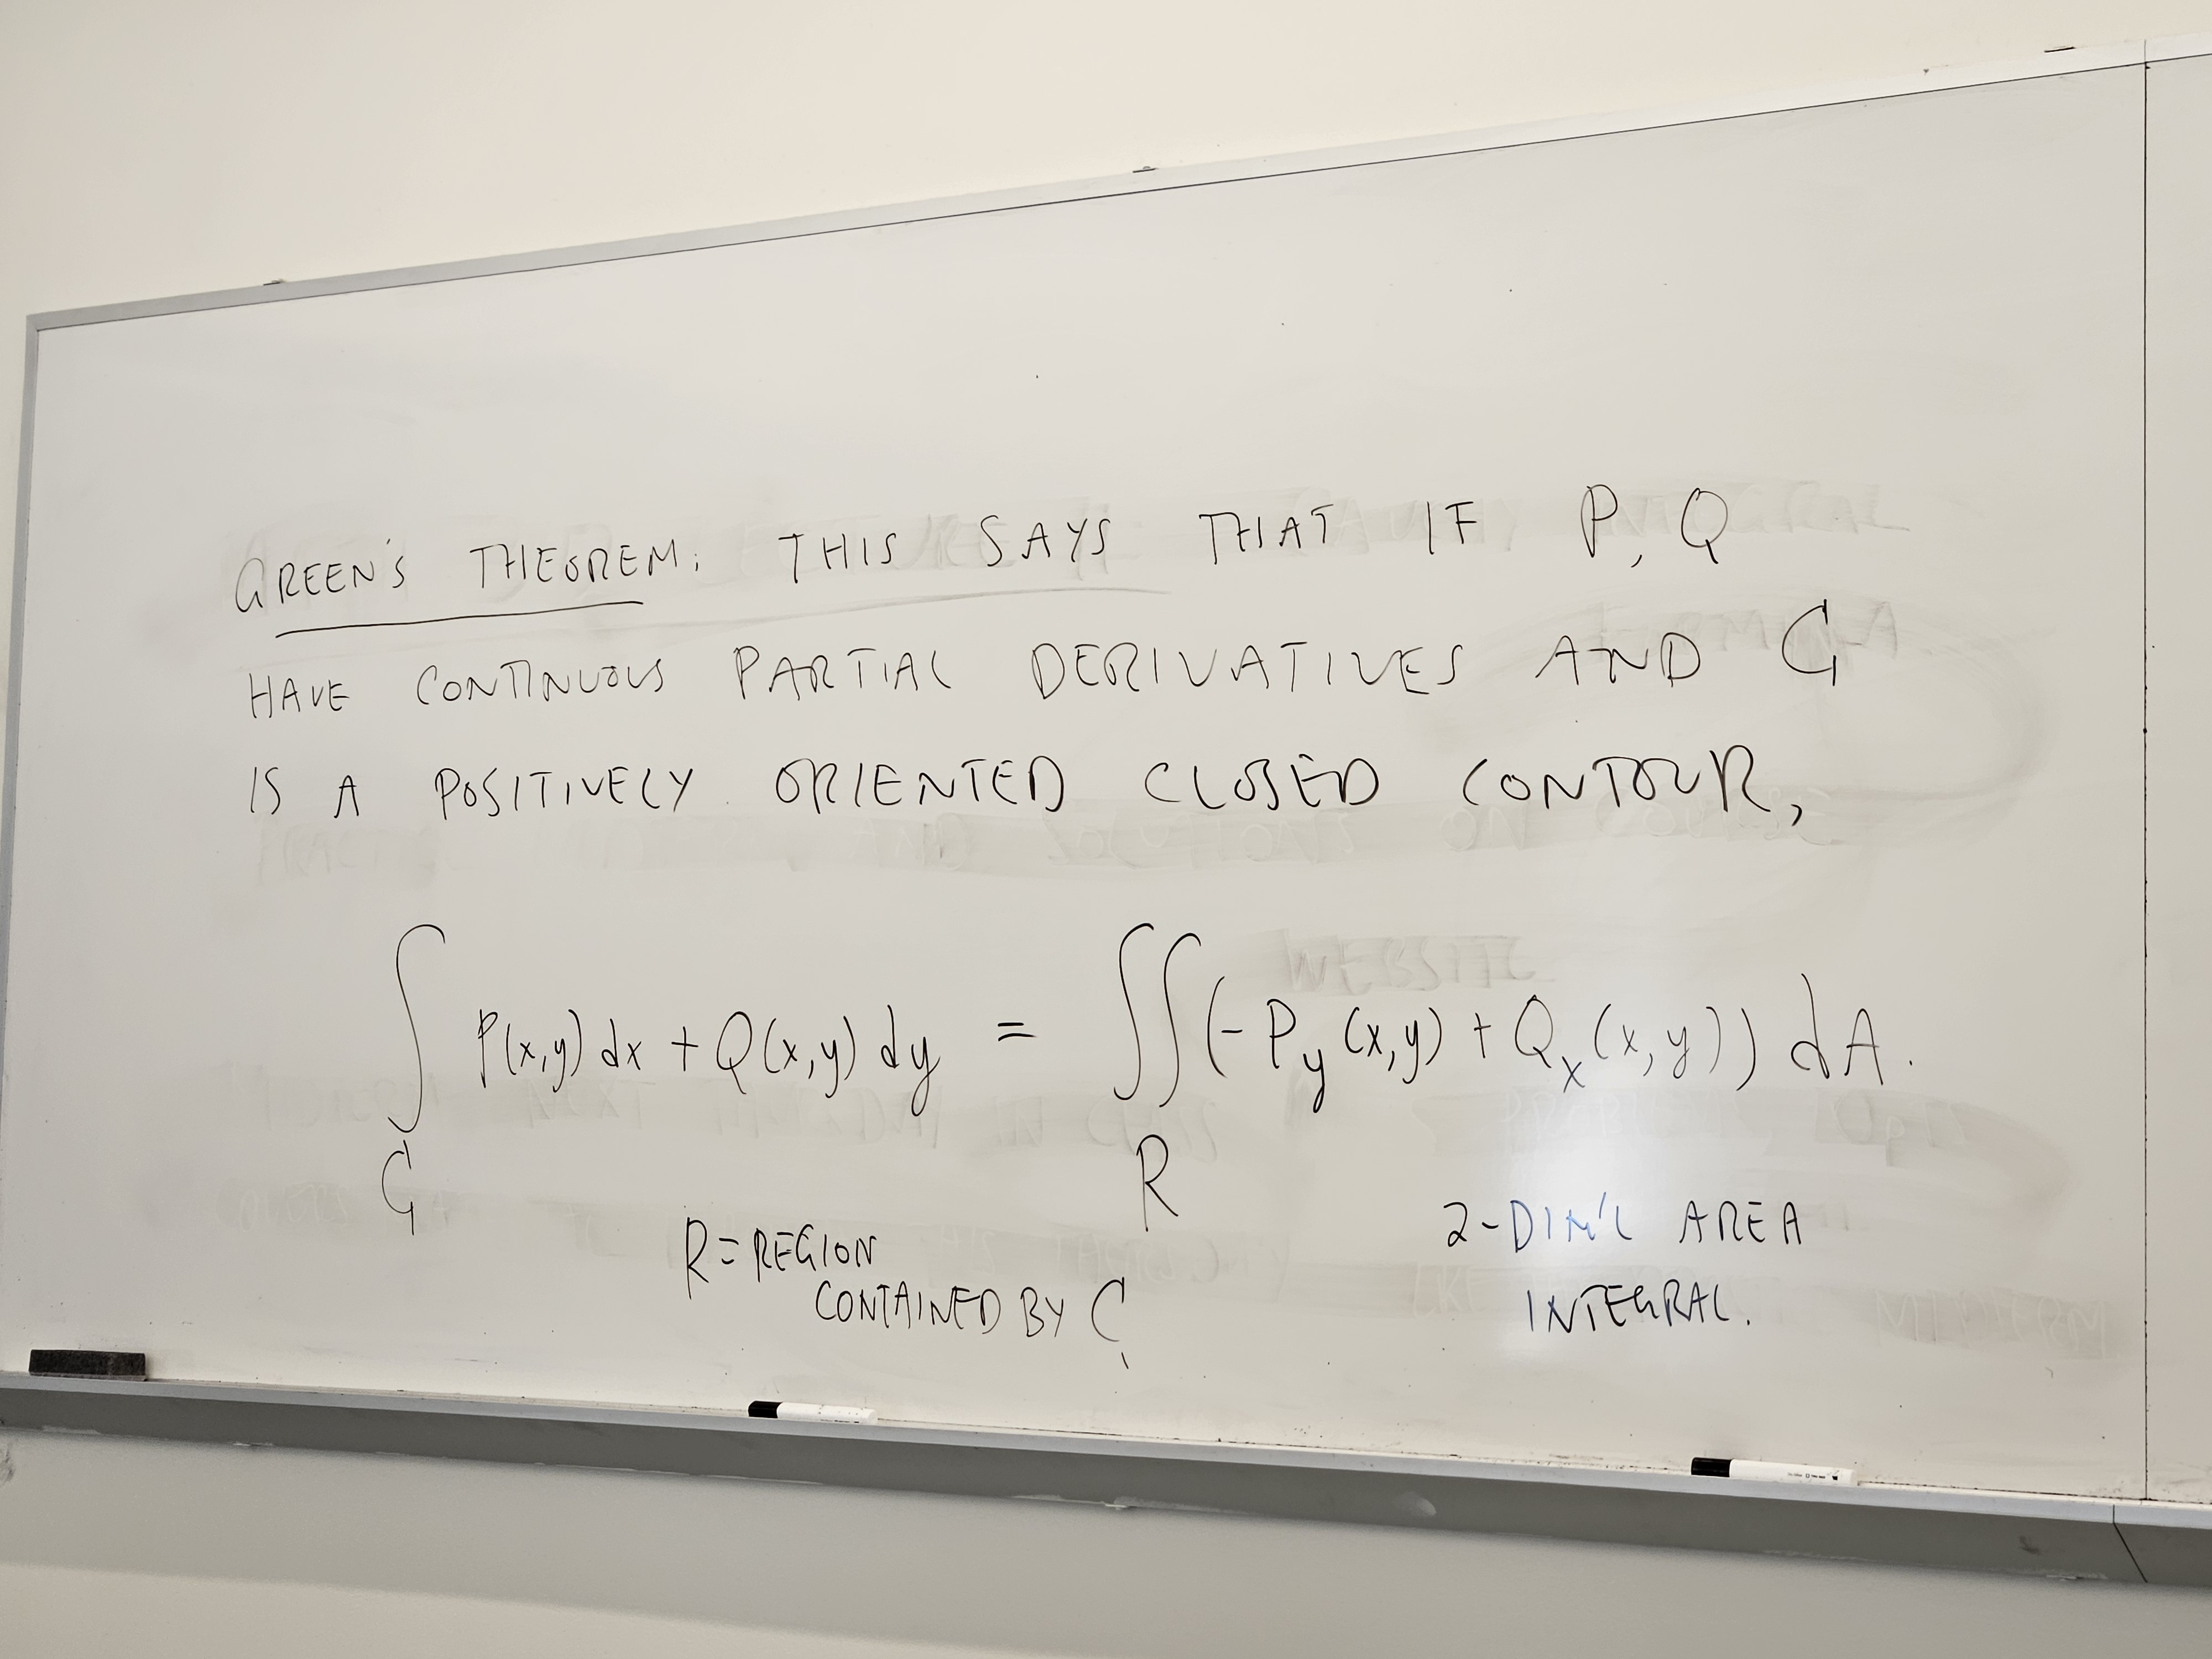 GREEN'S THEOREM: THIS SAYS THAT IF P, Q
HAVE CONTINUOUS PARTIAL DERIVATIVES AND C
IS A POSITIVELY ORIENTED CLOSED CONTOUR,
∫_C P(x,y) dx + Q(x,y) dy = ∬_R (-P_y (x,y) + Q_x (x,y)) dA.
R = REGION
CONTAINED BY C
2-DIM'L AREA
INTEGRAL.
WEBSITE